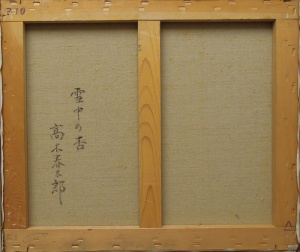 P10
雪中の杏
高木春太郎